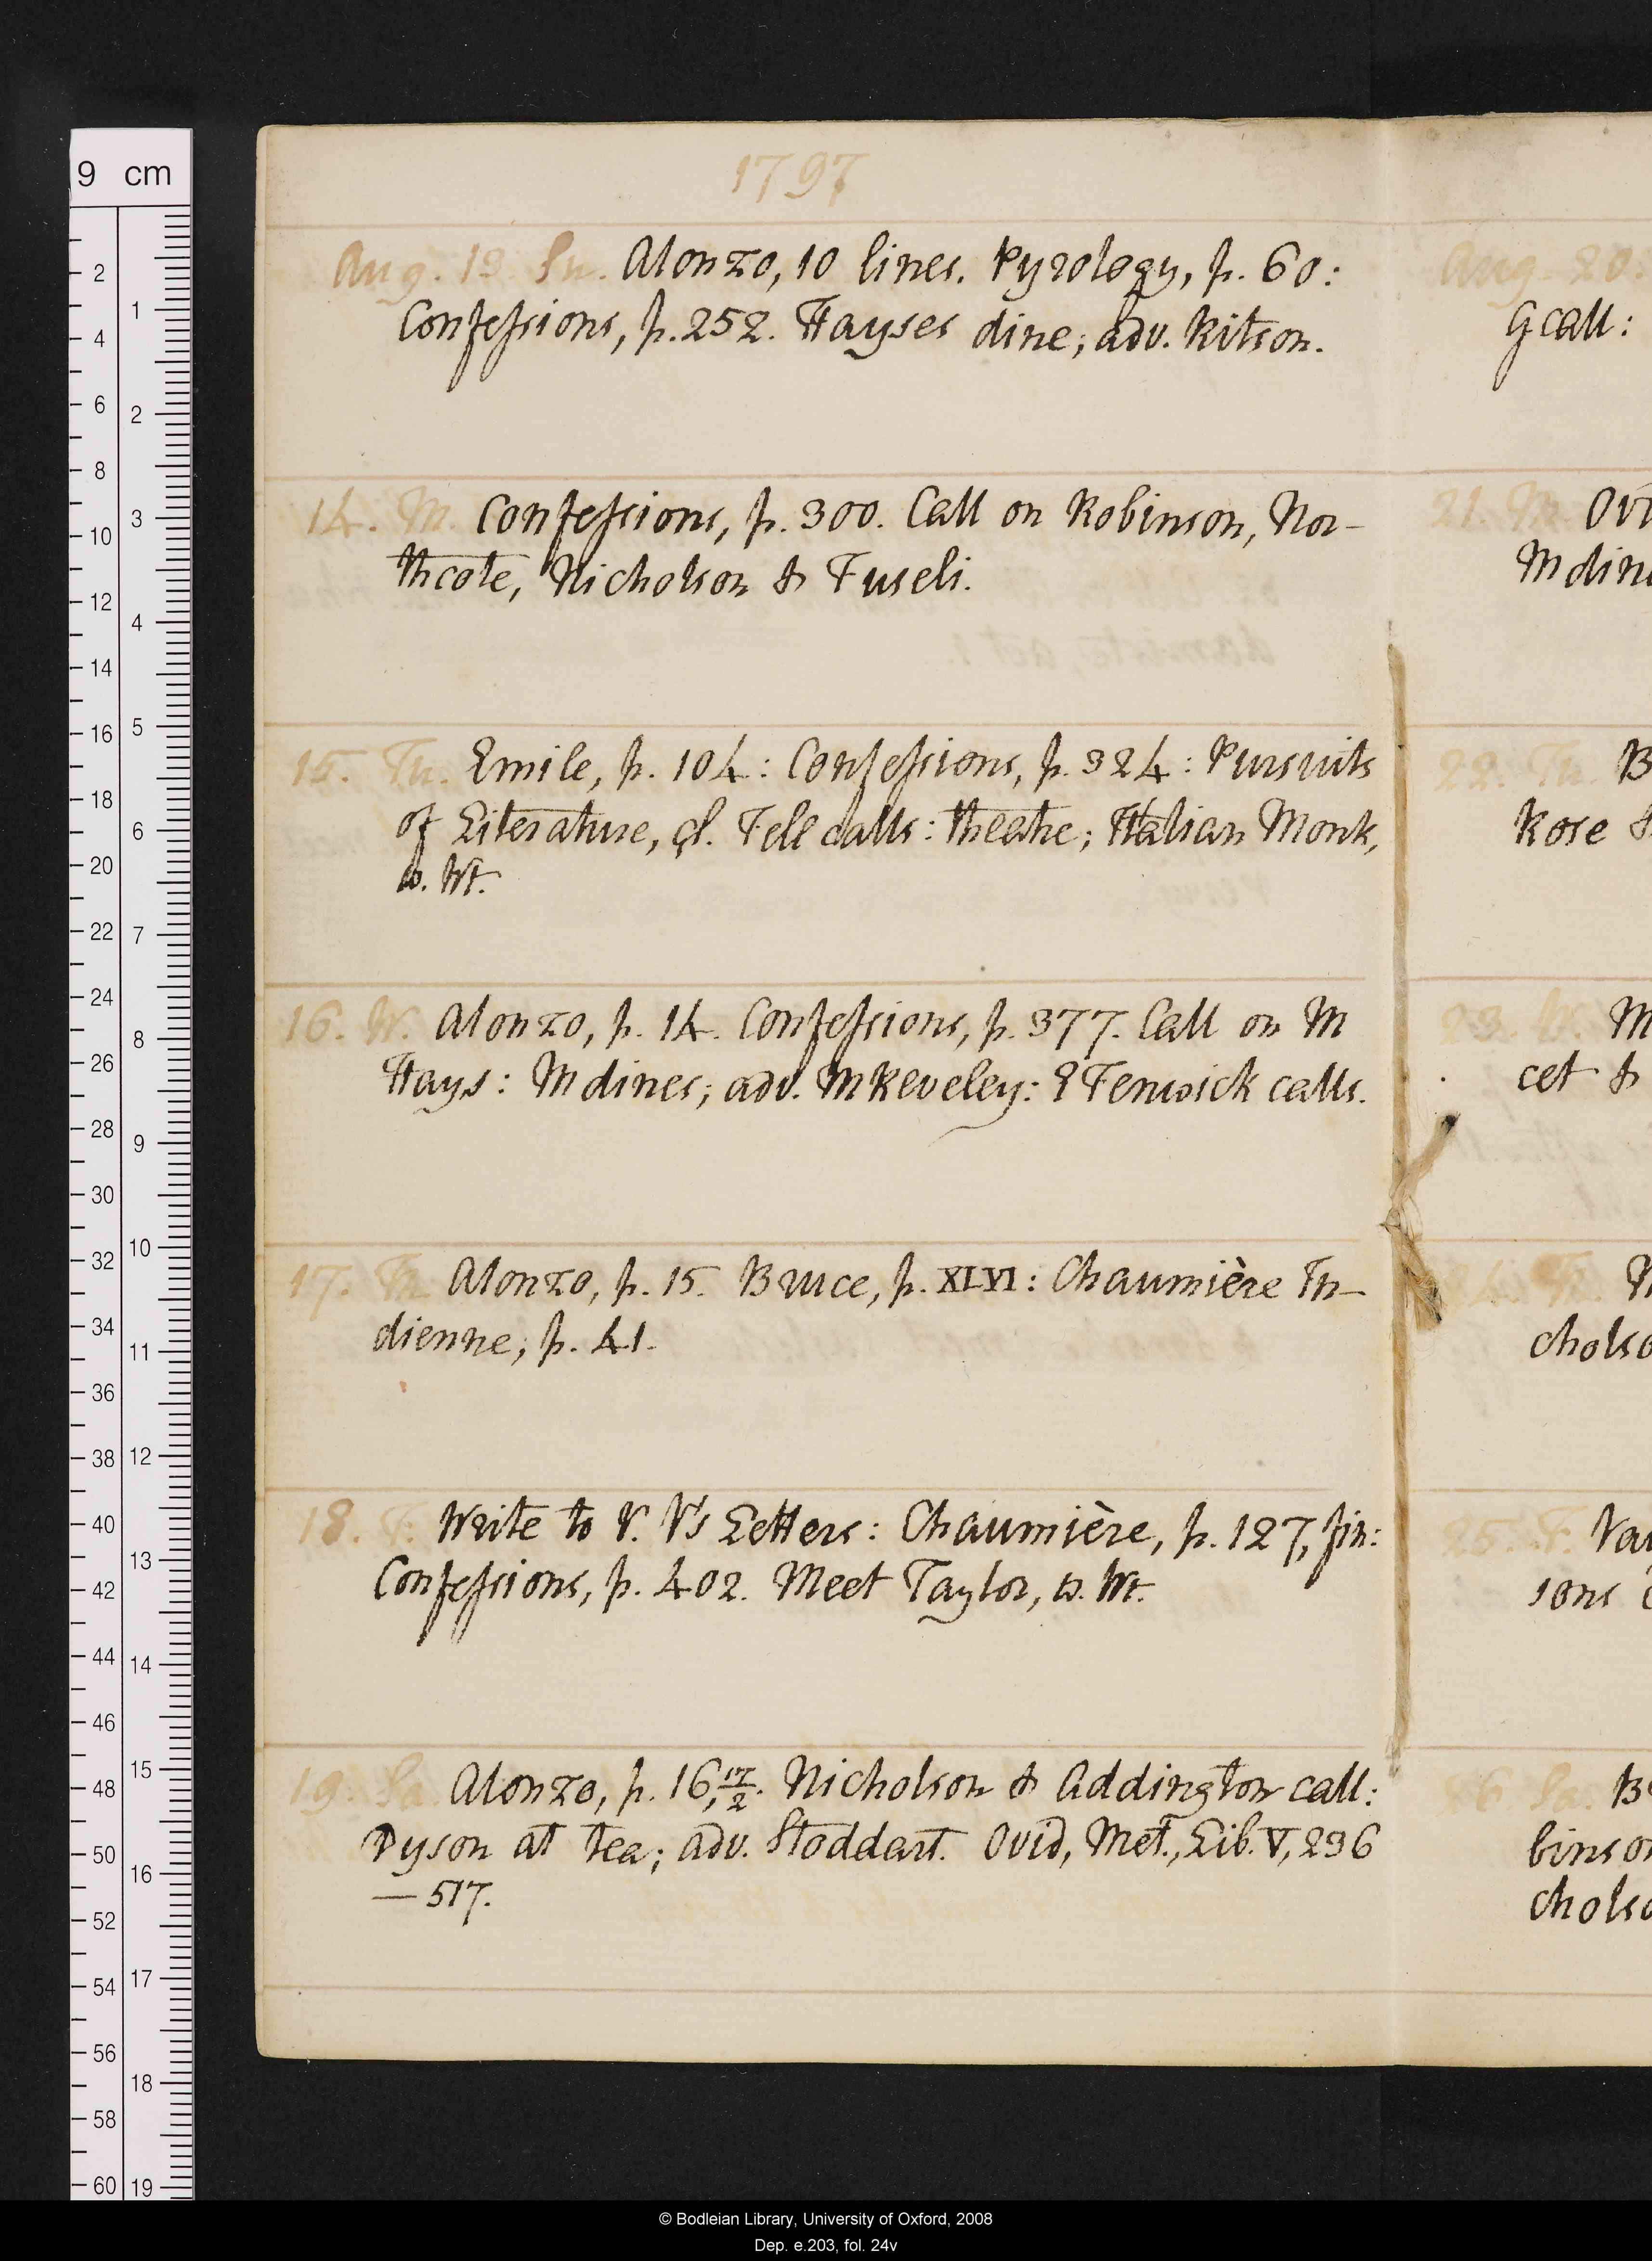 1797
Aug. 13. Su. Alonzo, 10 lines. Pyrology, p. 60:
Confessions, p. 252. Hayses dine; adv. Ritson.
14. M. Confessions, p. 300. Call on Robinson, Nor-
thcote, Nicholson & Fuseli.
15. Tu. Emile, p. 104: Confessions, p. 324: Pursuits
of Literature, çl. Fell calls: theatre; Italian Monk,
w. Wt.
16. W. Alonzo, p. 14. Confessions, p. 377. Call on M
Hays: M dines; adv. M Reveley: E Fenwick calls.
17. Th. Alonzo, p. 15. Bruce, p. XLVI: Chaumière In-
dienne, p. 41.
18. F. Write to V. V's Letters: Chaumière, p. 127, fin:
Confessions, p. 402. Meet Taylor, w. Wt.
19. Sa. Alonzo, p. 16, 17/2. Nicholson & Addington call:
Dyson at tea; adv. Stoddart. Ovid, Met., Lib. V, 236
— 517.
Aug. 20.
G call:
21. M. Ovi
M dine
22. Tu. B
Rose &
23. W. M
cet &
Th. N
cholso
25. F. Va
sons c
Sa. B
binson
cholso
9 cm
2
4
6
8
10
12
14
16
18
20
22
24
26
28
30
32
34
36
38
40
42
44
46
48
50
52
54
56
58
60
1
2
3
4
5
6
7
8
9
10
11
12
13
14
15
16
17
18
19
© Bodleian Library, University of Oxford, 2008
Dep. e.203, fol. 24v